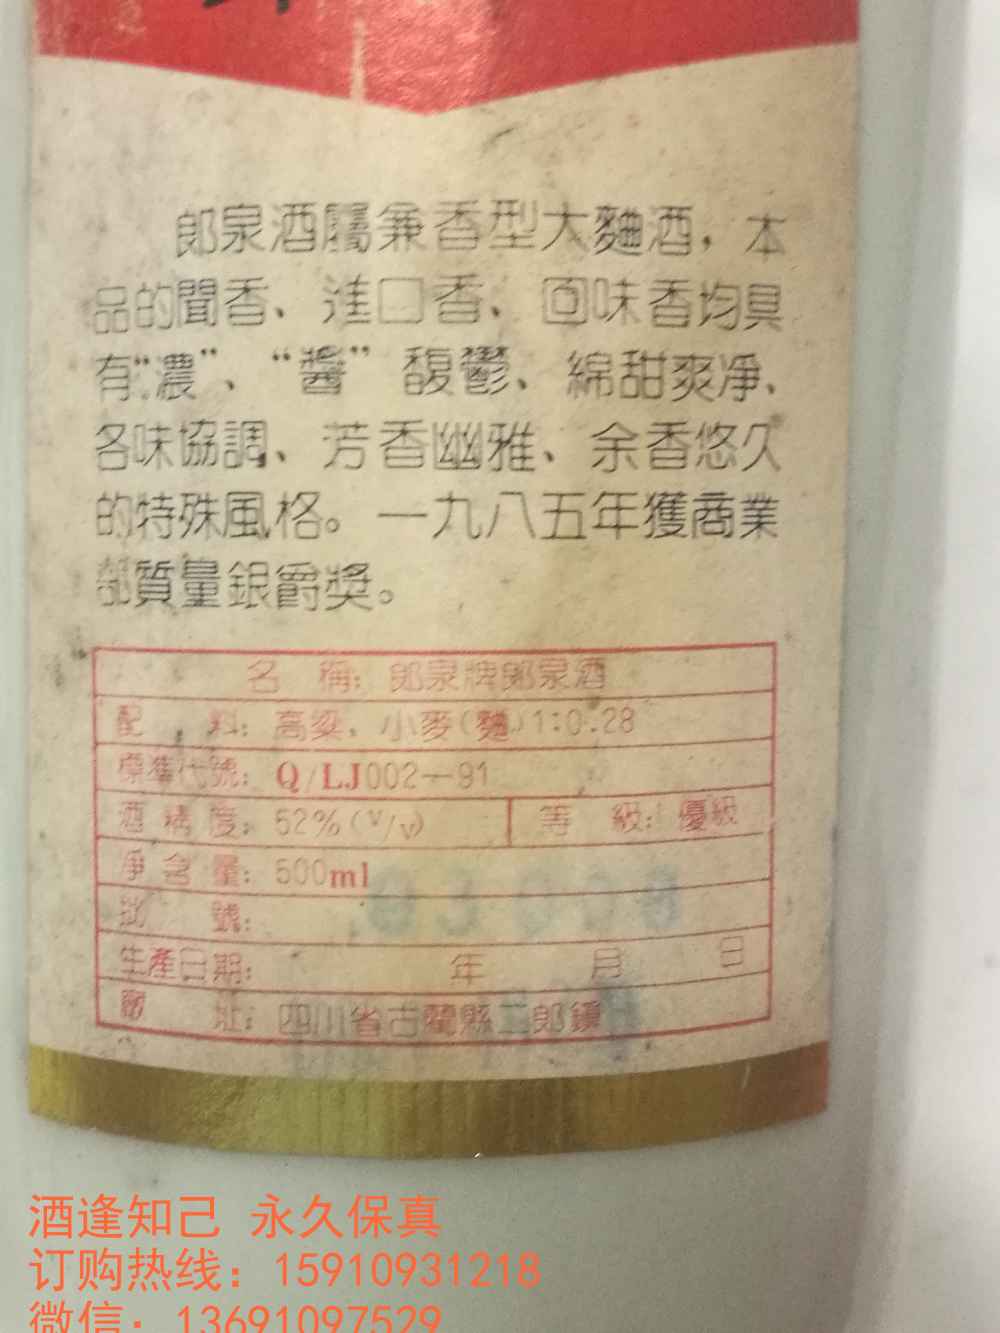 郎泉酒屬兼香型大麯酒，本
品的聞香、進口香、回味香均具
有“濃”、“醬”馥鬱、綿甜爽净、
各味協調、芳香幽雅、余香悠久
的特殊風格。一九八五年獲商業
部質量銀爵獎。
名 稱：郎泉牌郎泉酒
配 料：高粱，小麥(麯)1:0.28
標準代號：Q/LJ002—91
酒精度：52%(v/v) 等 級：優級
净含量：500ml
批 號：
生產日期： 年 月 日
廠 址：四川省古藺縣二郎鎮
酒逢知己 永久保真
订购热线：15910931218
微信：13691097529